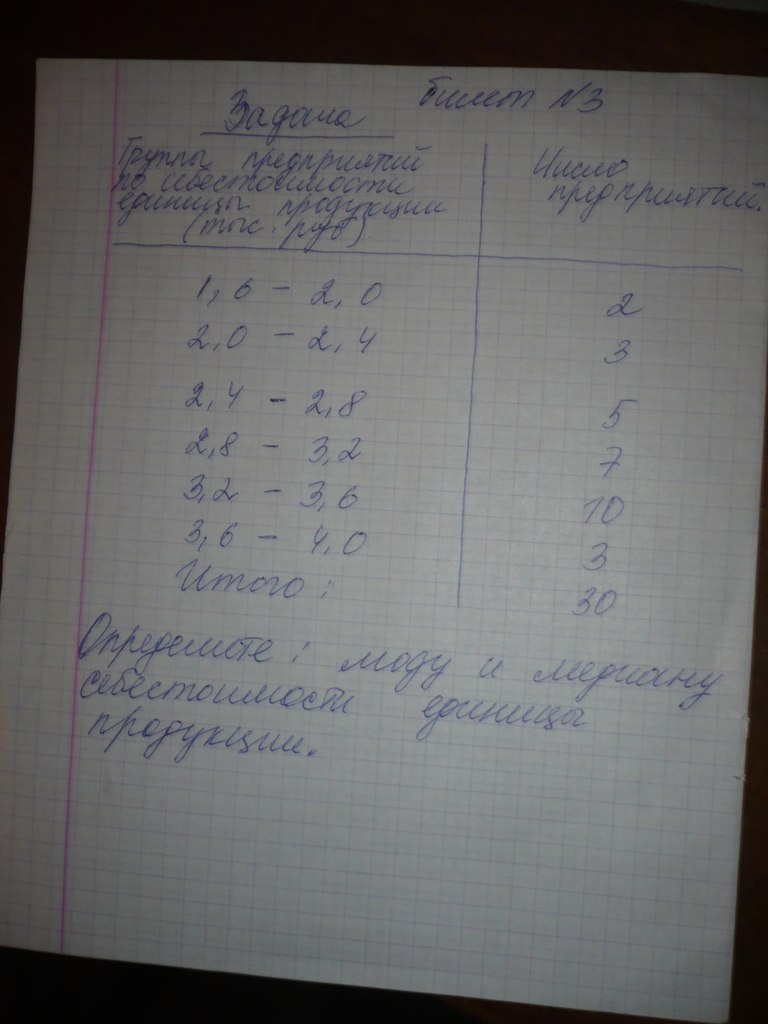 билет №3
Задача
Группы предприятий
по себестоимости
единицы продукции
(тыс. руб)
Число
предприятий.
1,6 - 2,0 2
2,0 - 2,4 3
2,4 - 2,8 5
2,8 - 3,2 7
3,2 - 3,6 10
3,6 - 4,0 3
Итого: 30
Определите: моду и медиану
себестоимости единицы
продукции.